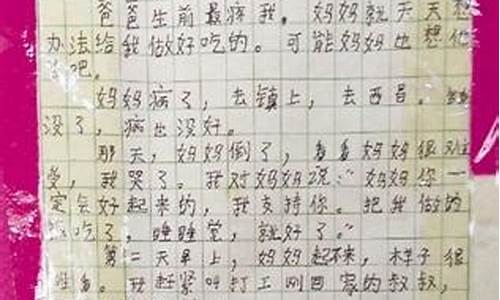 爸爸生前最疼我。妈妈就天天想
办法给我做好吃的。可能妈妈也想他
了吧。
妈妈病了，去镇上，去西昌。钱
没了，病也没好。
那天，妈妈倒了，看看妈妈很难
受，我哭了。我对妈妈说：“妈妈你一
定会好起来的，我支持你。把我做的
饭吃了，睡睡觉，就好了。”
第二天早上，妈妈起不来，样子很
难看。我赶紧叫打工刚回家的叔叔，